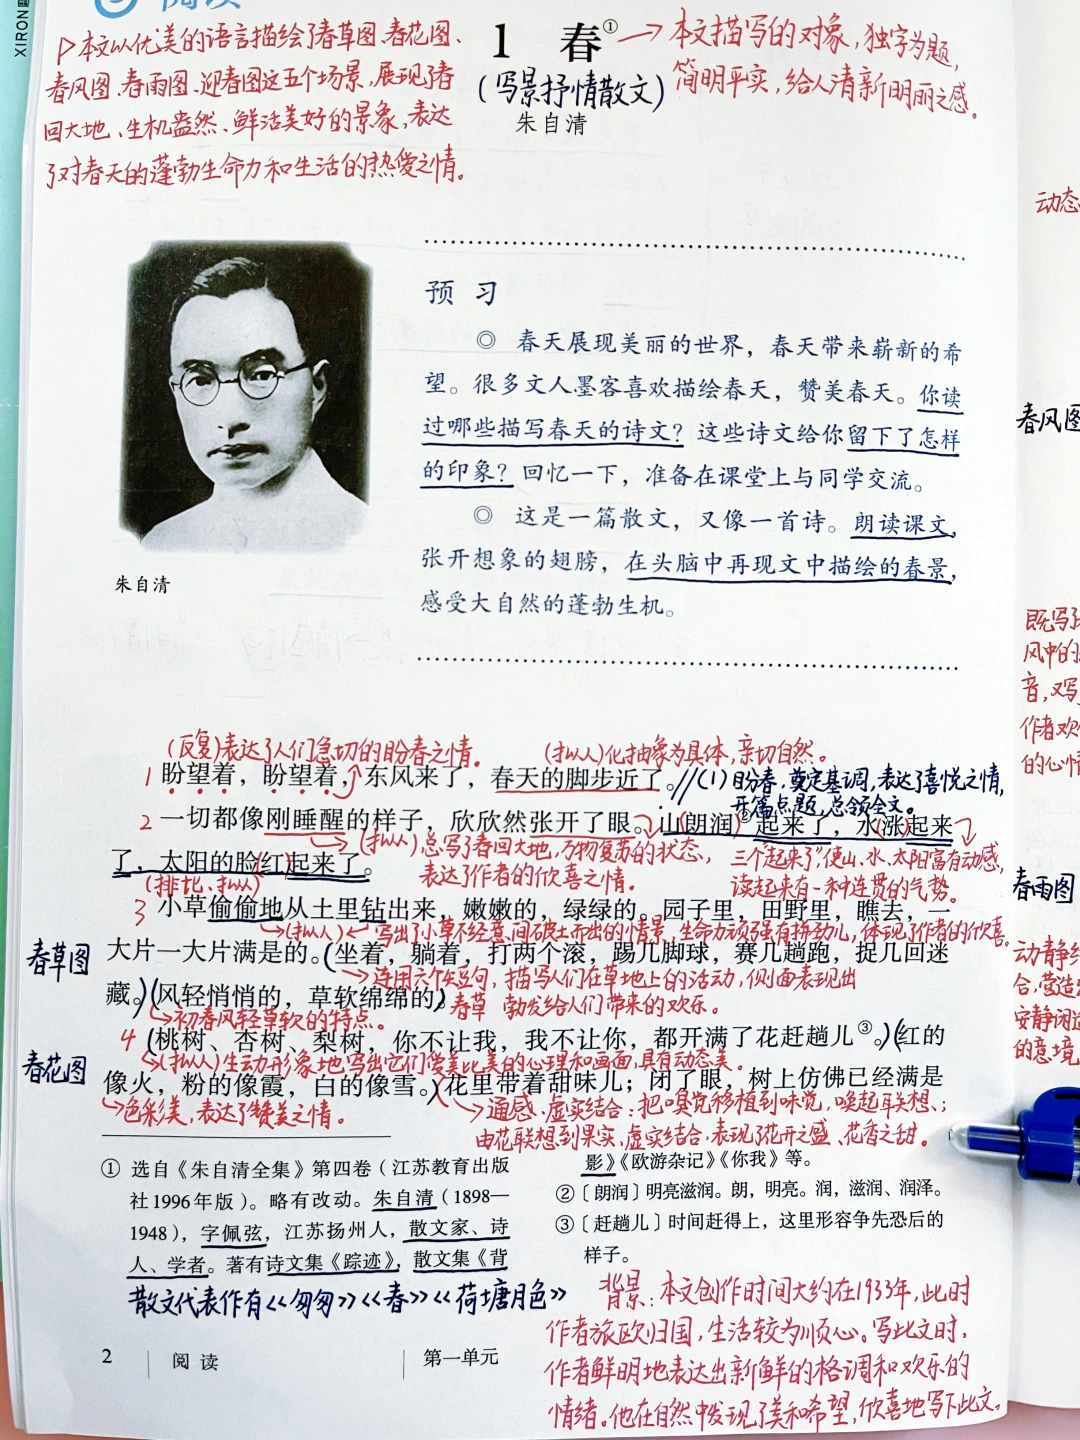 XIRON
阅读
1 春①
(写景抒情散文)
朱自清
→本文描写的对象,独字为题,
简明平实,给人清新明丽之感。
▷本文以优美的语言描绘了春草图、春花图、
春风图、春雨图、迎春图这五个场景,展现了春
回大地、生机盎然、鲜活美好的景象,表达
了对春天的蓬勃生命力和生活的热爱之情。
朱自清
预 习
◎ 春天展现美丽的世界,春天带来崭新的希
望。很多文人墨客喜欢描绘春天,赞美春天。你读
过哪些描写春天的诗文?这些诗文给你留下了怎样
的印象?回忆一下,准备在课堂上与同学交流。
◎ 这是一篇散文,又像一首诗。朗读课文,
张开想象的翅膀,在头脑中再现文中描绘的春景,
感受大自然的蓬勃生机。
(反复)表达了人们急切的盼春之情。
(拟人)化抽象为具体,亲切自然。
1 盼望着,盼望着,东风来了,春天的脚步近了。
//(1)盼春,奠定基调,表达了喜悦之情,
开篇点题,总领全文。
2 一切都像刚睡醒的样子,欣欣然张开了眼。山朗润②起来了,水涨起来
→(拟人)总写了春回大地,万物复苏的状态,
表达了作者的欣喜之情。
三个“起来了”使山、水、太阳富有动感,
读起来有一种连贯的气势。
了,太阳的脸红起来了。
(排比、拟人)
3 小草偷偷地从土里钻出来,嫩嫩的,绿绿的。园子里,田野里,瞧去,一
→(拟人)←写出了小草不经意间破土而出的情景,生命力顽强有拼劲儿,体现了作者的欣喜。
春草图
大片一大片满是的。(坐着,躺着,打两个滚,踢几脚球,赛几趟跑,捉几回迷
→连用六个短句,描写人们在草地上的活动,侧面表现出
藏。)(风轻悄悄的,草软绵绵的。)
春草 勃发给人们带来的欢乐。
→初春风轻草软的特点。
4 (桃树、杏树、梨树,你不让我,我不让你,都开满了花赶趟儿③。)(红的
→(拟人)生动形象地写出它们争美比美的心理和画面,具有动态美。
春花图
像火,粉的像霞,白的像雪。)花里带着甜味儿;闭了眼,树上仿佛已经满是
→色彩美,表达了赞美之情。
→通感、虚实结合:把嗅觉移植到味觉,唤起联想;
由花联想到果实,虚实结合,表现了花开之盛、花香之甜。
① 选自《朱自清全集》第四卷(江苏教育出版
社1996年版)。略有改动。朱自清(1898—
1948),字佩弦,江苏扬州人,散文家、诗
人、学者。著有诗文集《踪迹》,散文集《背
影》《欧游杂记》《你我》等。
②〔朗润〕明亮滋润。朗,明亮。润,滋润、润泽。
③〔赶趟儿〕时间赶得上,这里形容争先恐后的
样子。
散文代表作有《匆匆》《春》《荷塘月色》
背景:本文创作时间大约在1933年,此时
作者旅欧归国,生活较为顺心。写此文时,
作者鲜明地表达出新鲜的格调和欢乐的
情绪。他在自然中发现了美和希望,欣喜地写下此文。
2
阅 读
第一单元
动态
春风图
既写
风中的
音,又写
作者欢
的心情
春雨图
动静结
合,营造
安静闲适
的意境